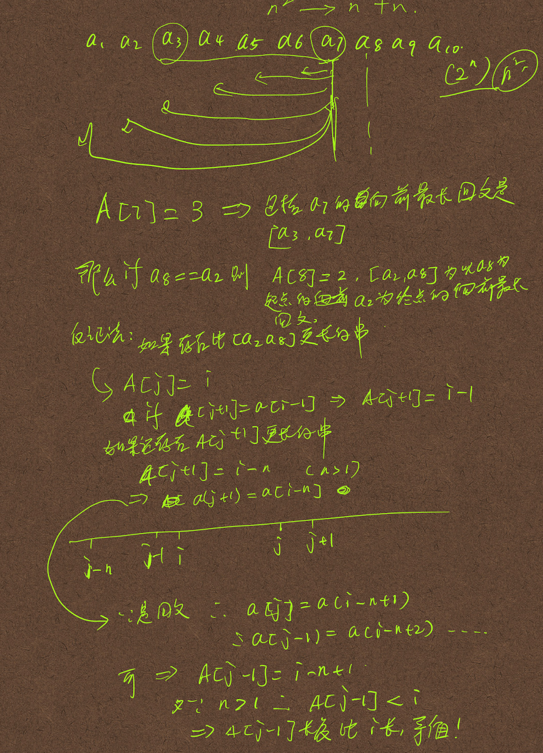 n² → n + n.
a₁ a₂ a₃ a₄ a₅ a₆ a₇ a₈ a₉ a₁₀.
(2ⁿ) n²
A[7] = 3 ⇒ 包括 a₇ 的向前最长回文是
[a₃, a₇]
那么 if a₈ == a₂ 则 A[8] = 2, [a₂, a₈] 为以 a₈ 为
起点的 a₂ 为终点的向前最长
回文。
反证法: 如果存在比 [a₂ a₈] 更长的串
A[j] = i
if a[j+1] = a[i-1] ⇒ A[j+1] = i-1
如果还存在 A[j+1] 更长的串
A[j+1] = i-n (n>1)
⇒ a(j+1) = a[i-n]
j-n j-1 i j j+1
∵是回文 ∴ a[j] = a(i-n+1)
∴ a(j-1) = a(i-n+2) ......
可 ⇒ A[j-1] = i-n+1
又∵ n>1 ∴ A[j-1] < i
⇒ A[j-1] 长度比 i 长, 矛盾!